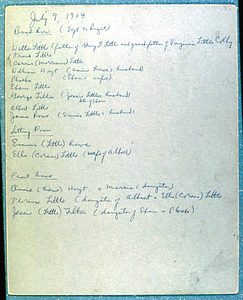 July 9, 1904
Back Row (Left to Right)
Willis Little (father of Harry F Little and grandfather of Virginia Little Colby
Frank Little
Carrie (Morrison) Little
William Hoyt (Annie Rowe's husband)
Phoebe (Eben's wife)
Eben Little
George Tilton (Jessie Little's husband)
Albert Little
James Rowe (Emma Little's husband)
Sitting Down
Emma (Little) Rowe
Ella (Coran) Little (wife of Albert)
Front Row
Annie (Rowe) Hoyt + Marion (daughter)
Little (daughter of Albert + Ella (Coran) Little
Jessie (Little) Tilton (daughter of Eben + Phoebe)